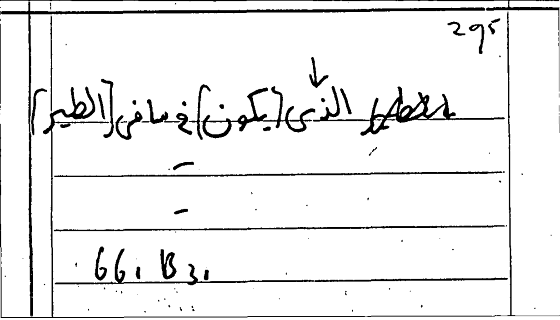 295
↓
الذى (يكون) في ساقى [الطير]
–
–
66, B 3,